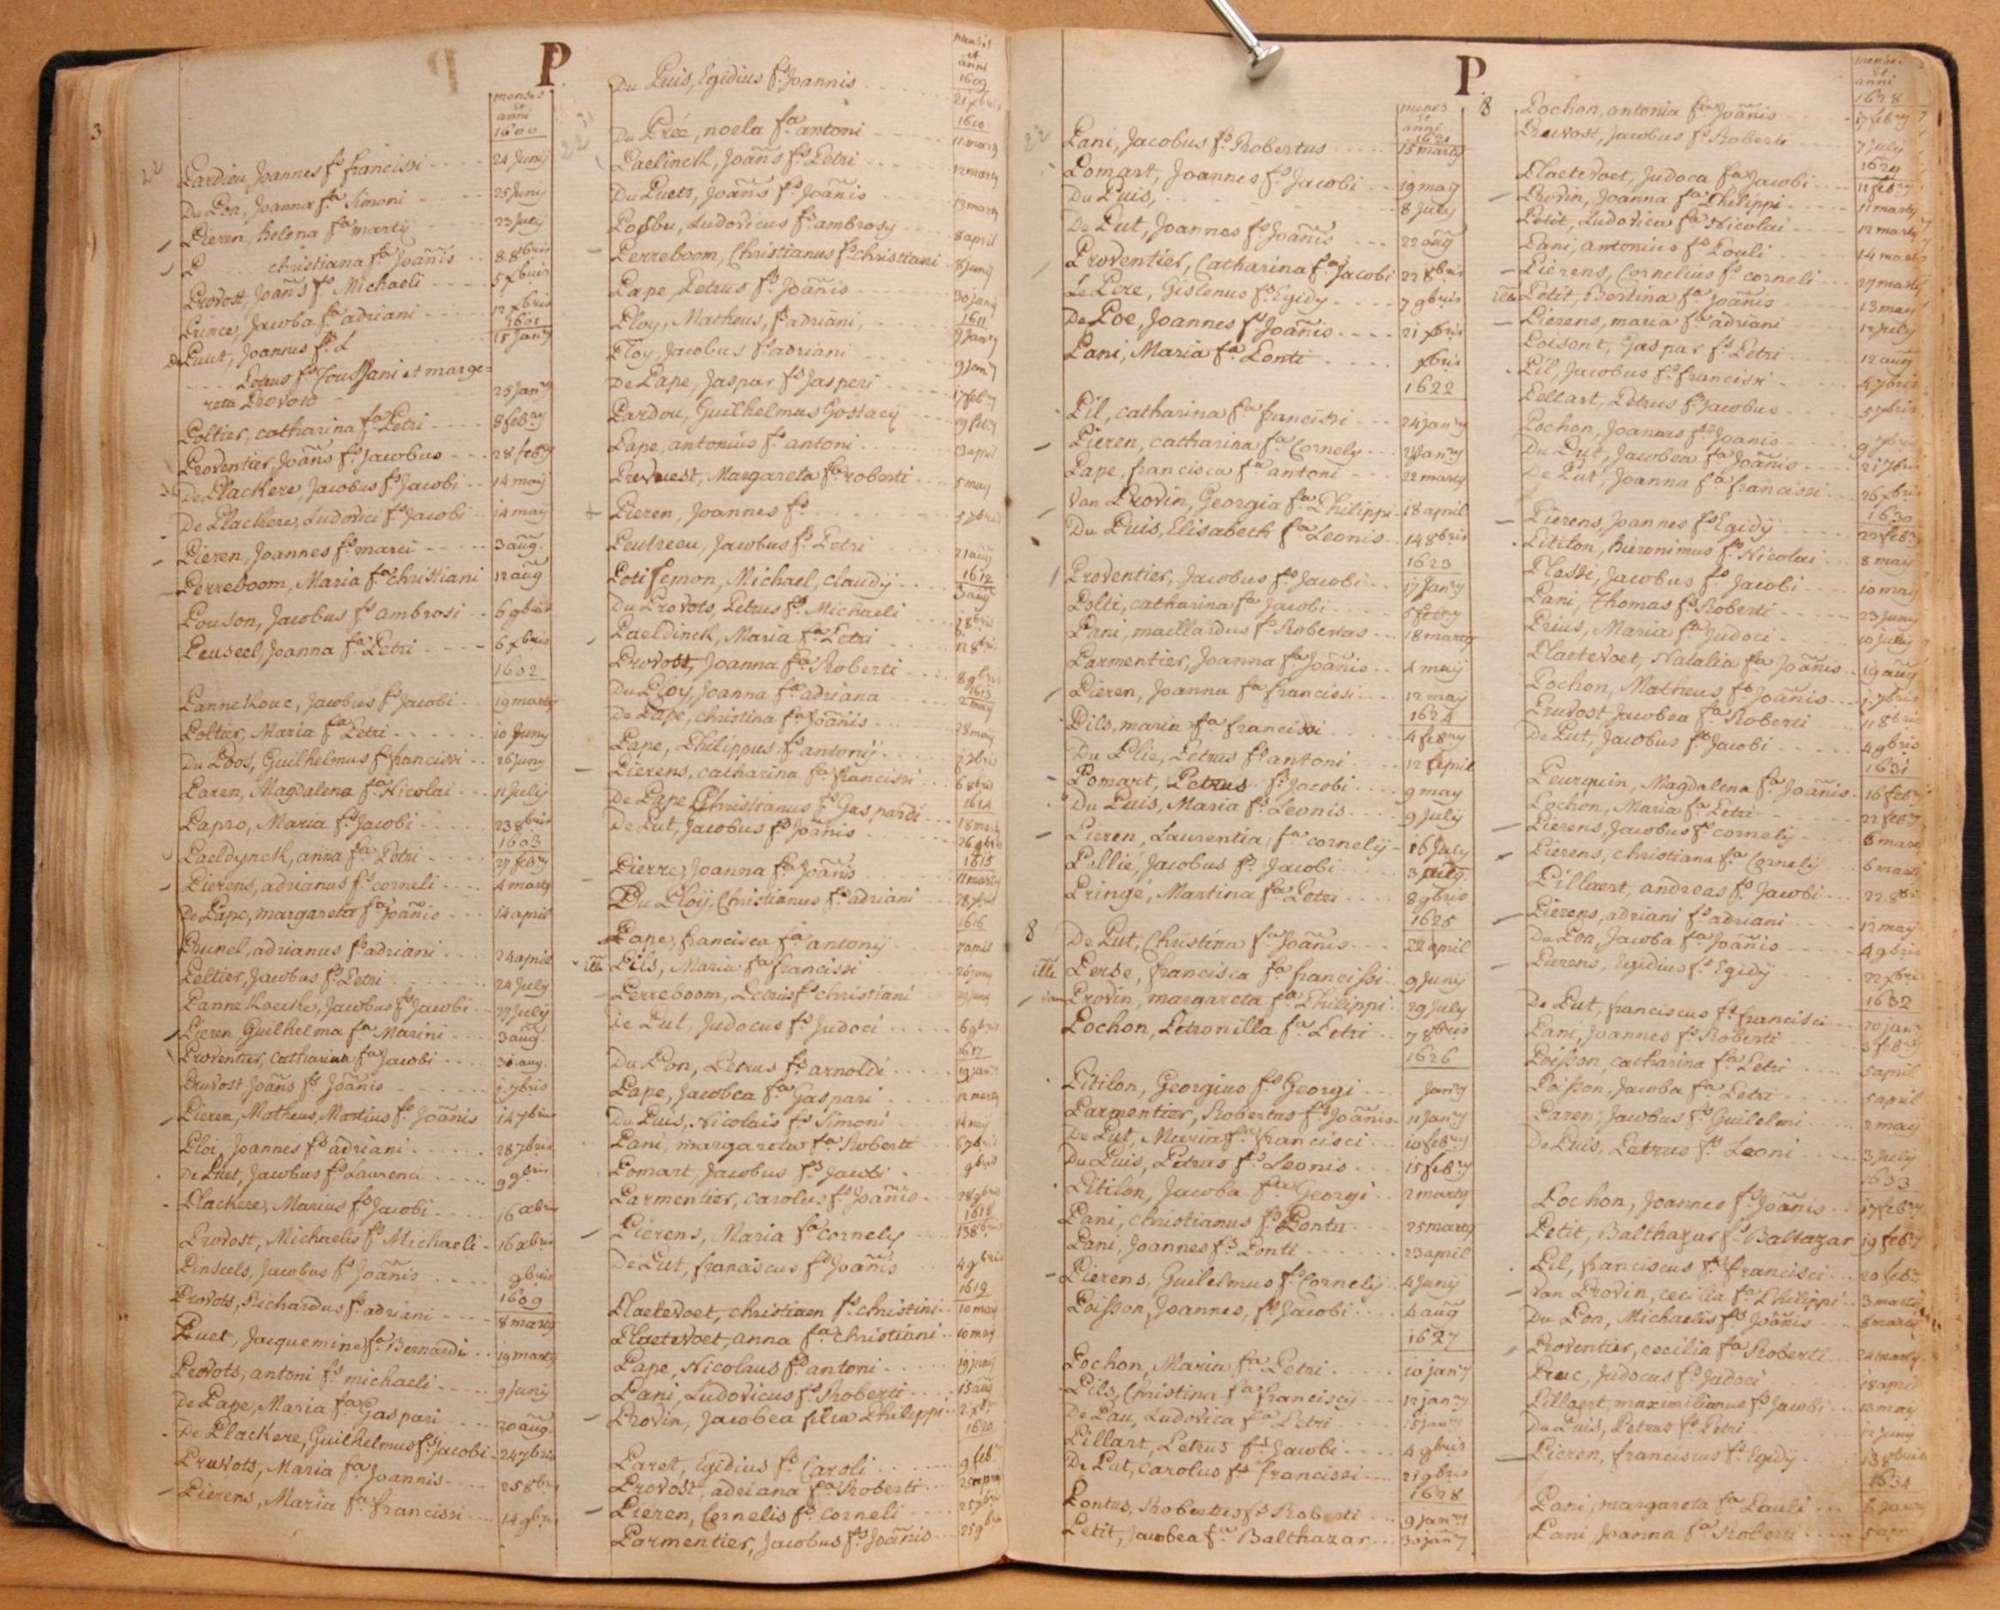 P.
menses
et
anni
1600
Pardieu Joannes fs francisci 24 Junij
Du Pon, Joanna fa Simoni 25 Juny
Pieren, helena fa marty 23 July
P christiana fa Joañis 8 8bris
Provost, Joañs fs Michaeli 5 xbris
Prince, Jacoba fa adriani 12 xbris
1601
de Puut, Joannes fs L 15 Janry
Petrus fs Toussani et marge=
reta Provoto 25 Janry
Poltier, catharina fa Petri 8 febry
Proventier Joañs fs Jacobus 28 febry
De Plackere, Jacobus fs Jacobi 14 maij
De Plackere, Ludovici fs Jacobi 14 may
Pieren, Joannes fs marci 3 aug.
Perreboom, Maria fa christiani 12 aug
Pouson, Jacobus fs ambrosi 6 9bris
Peuseel, Joanna fa Petri 6 xbris
1602
Pannekouc, Jacobus fs Jacobi 19 marty
Poltier, Maria fa Petri 10 Juny
Du Poos, Guilhelmus fs francisci 26 Juny
Paren, Magdalena fa Nicolai 11 July
Papro, Maria fa Jacobi 23 8bris
1603
Paeldynck, anna fa Petri 27 febry
Pierens, adrianus fs corneli 4 marty
De Pape, margareta fa Joañis 14 april
Prunel, adrianus fs adriani 24 april
Peltier, Jacobus fs Petri 24 July
Pannekoecke, Jacobus fs Jacobi 27 July
Pieren Guilhelma fa Marini 3 aug
Proventier, Catharina fa Jacobi 30 aug.
Pruvost Joañs fs Joañis 1 7bris
Pieren, Matheus, Martius fs Joañis 14 7bris
Ploi, Joannes fs adriani 28 7bris
De Put, Jacobus fs Laurenci 9 9bris
Plackere, Marius fs Jacobi 16 xbris
Provost, Michaelis fs Michaeli 16 xbris
Pinseels, Jacobus fs Joañis 9bris
1609
Provots, Richardus fs adriani 8 marty
Puet, Jacquemine fa Bernardi 19 marty
Provots, antoni fs michaeli 9 Juny
De Pape, Maria fa Gaspari 20 aug.
De Plackere, Guilhelmus fs Jacobi 24 7bris
Pruvots, Maria fa Joannis 25 8bris
Pierens, Maria fa francisci 14 9bris
mensis
et
anni
1609
Du Puis, Egidius fs Joannis 21 xbris
1610
Du Prée, noela fa antoni 11 marty
Paelinck, Joañs fs Petri 12 marty
Du Puets, Joañs fs Joañis 13 marty
Popbu, Ludovicus fs ambrosy 8 april
Perreboom, Christianus fs christiani 8 Junij
Pape Petrus fs Joañis 30 Junij
1611
Ploy, Matheus, fs adriani, 9 Janry
Ploy, Jacobus fs adriani 9 Janry
De Pape, Jaspar fs Jasperi 17 febry
Pardou, Guilhelmus Gostacij 19 febry
Pape, antonius fs antoni 13 april
Prevuest, Margareta fa roberti 5 may
Pieren, Joannes fs 5 7bris
Peutreeu, Jacobus fs Petri 21 aug
1612
Poti semon, Michael, claudij 3 aug
Du Provots, Petrus fs Michaeli 28bris
Paeldinck, Maria fa Petri 12 8bris
Provost, Joanna fa Roberti 8 9bris
1613
Du Ploy, Joanna fa adriana 2 may
De Pape, christina fa Joañis 28 may
Pape, Philippus fs antonij 27bris
Pierens, catharina fa francisci 6 8bris
1614
De Pape Christianus fs Gaspardi 18 marty
De Put, Jacobus fs Joañis 26 9bris
1615
Pierre, Joanna fa Joañis 11 marty
Du Ploij, Christianus fs adriani
1616
Pape, francisca fa antonij 7 april
Pils, Maria fa francisci 26 juny
Perreboom, Petrus fs christiani
de Put, Judocus fs Judoci 6 9bris
1617
Du Pon, Petrus fs arnoldi 19 janry
Pape, Jacobea fa Gaspari 12 marty
Du Puis, Nicolais fs Simoni 14 may
Pani, margareta fa Roberti 6 7bris
Pomart, Jacobus fs Jacobi 9bris
Parmentier, carolus fs Joañis 28 9bris
1618
Pierens, Maria fa cornely 13 8bris
De Put, franciscus fs Joañis 4 9bris
1619
Plaetevoet, christiaen fs christini 10 may
Plaetevoet, anna fa Christiani 10 may
Pape, Nicolaus fs antoni 19 junij
Pani, Ludovicus fs Roberti 15 aug
Provin, Jacobea filia Philippi 2 xbr
1620
Paret, Egidius fs Caroli 9 feb.
Provost, adriana fa Roberti
Pieren, Cornelis fs corneli 25 7bris
Parmentier, Jacobus fs Joañis 25 9bris
P.
menses
et
anni
1621
Pani, Jacobus fs Robertus 15 marty
Pomart, Joannes fs Jacobi 19 maij
Du Puis, 8 July
De Put, Joannes fs Joañis 22 aug
Proventier, Catharina fa Jacobi 22 8bris
Le Pire, Gislenus fs Egidij 7 9bris
De Poe, Joannes fs Joañis 21 xbris
Pani, Maria fa Ponti xbris
1622
Pil, catharina fa francisci 24 janry
Pieren, catharina fa Cornely 28 janry
Pape, francisca fa antoni 22 marty
Van Provin, Georgia fa Philippi 18 april
Du Puis, Elisabeth fa Leonis 14 8bris
1623
Proventier, Jacobus fs Jacobi 17 Janry
Polti, catharina fa Jacobi 5 febry
Pani, maillardus fs Robertus 18 marty
Parmentier, Joanna fa Joañis 1 maij
Pieren, Joanna fa francisci 12 may
1624
Pils, maria fa francisci 4 febry
Du Plie, Petrus fs antoni 12 april
Pomart, Petrus fs Jacobi 9 may
Du Puis, Maria fs Leonis 9 July
Pieren, Laurentia, fa cornely 16 July
Pillie, Jacobus fs Jacobi 3 aug.
Pringe, Martina fa Petri 8 9bris
1625
8 De Put, Christina fa Joañis 22 april
Perse, francisca fa francisci 9 Junij
van Provin, margareta fa Philippi 29 July
Pochon, Petronilla fa Petri 7 8bris
1626
Pitilon, Georgius fs Georgi Janry
Parmentier, Robertus fs Joañis 11 Janry
De Put, Maria fa francisci 10 febry
Du Puis, Petrus fs Leonis 15 febry
Pitilon, Jacoba fa Georgi 2 marty
Pani, christianus fs Pontu 25 marty
Pani, Joannes fs Ponti 23 april
Pierens, Guilelmus fs Cornelij 4 Junij
Poisson, Joannes, fs Jacobi 4 aug
1627
Pochon, Maria fa Petri 10 janry
Pils, Christina fa francisci 12 janry
De Pau, Ludovica fa Petri 15 janry
Pillart, Petrus fs Jacobi 4 9bris
De Put, carolus fs francisci 21 9bris
1628
Pontus, Robertus fs Roberti 9 janry
Petit, Jacobea fa Balthazar 30 janry
menses
et
anni
1628
8 Pochon, antonia fa Joañis 17 febry
Pruvost, Jacobus fs Roberti 7 July
1629
Plaetevoet, Judoca fa Jacobi 11 febry
Provin, Joanna fa Philippi 11 marty
Petit, Ludovica fa Nicolai 12 marty
Pani, antonius fs Pouli 14 marty
Pierens, Cornelius fs corneli 27 marty
Petit, Bertina fa Joañis 13 may
Pierens, maria fa adriani 12 July
Poisont, Gaspar fs Petri 12 aug
Pil, Jacobus fs francisci 4 7bris
Pellart, Petrus fs Jacobus 5 7bris
Pochon, Joannes fs Joanis 9 7bris
Du Put, Jacobea fa Joañis 21 7bris
De Put, Joanna fa francisci 26 xbris
1630
Pierens, Joannes fs Egidij 22 febry
Pitilon, hieronimus fs Nicolai 8 may
Plassi, Jacobus fs Jacobi 10 may
Pani, Thomas fs Roberti 23 Juny
Prius, Maria fa Judoci 10 July
Plaetevoet, Natalia fa Joañis 19 aug
Pochon, Matheus fs Joañis 1 7bris
Pruvost Jacobea fa Roberti 11 8bris
De Put, Jacobus fs Jacobi 4 9bris
1631
Peurquin, Magdalena fa Joañis 16 febry
Pochon, Maria fa Petri 22 febry
Pierens, Jacobus fs cornelij 6 marty
Pierens, christiana fa Cornelij 6 marty
Pillaert, andreas fs Jacobi 22 8bri
Pierens, adriani fs adriani 12 may
Du Pon, Jacoba fa Joañis 4 9bris
Pierens, Egidius fs Egidij 22 xbris
1632
De Put, franciscus fs francisci 20 janry
Pani, Joannes fs Roberti 3 febry
Poisson, catharina fa Petri 5 april
Poisson, Jacoba fa Petri 5 april
Paren, Jacobus fs Guilelmi 2 may
De Puis, Petrus fs Leoni 3 July
1633
Pochon, Joannes fs Joañis 17 febry
Petit, Balthazar fs Baltazar 19 febry
Pil, franciscus fs francisci 20 febry
Van Provin, cecilia fa Philippi 3 marty
Du Pon, Michaelis fs Joañis 8 marty
Proventier, cecilia fa Roberti 24 marty
Pruc, Judocus fs Judoci 18 april
Pillaert, maximilianus fs Jacobi 13 may
Du Puis, Petrus fs Petri 12 Juny
Pieren, franciscus fs Egidij 13 8bris
1634
Pani, margareta fa Pauli 6 janry
Pani Joanna fa Roberti 5 apr